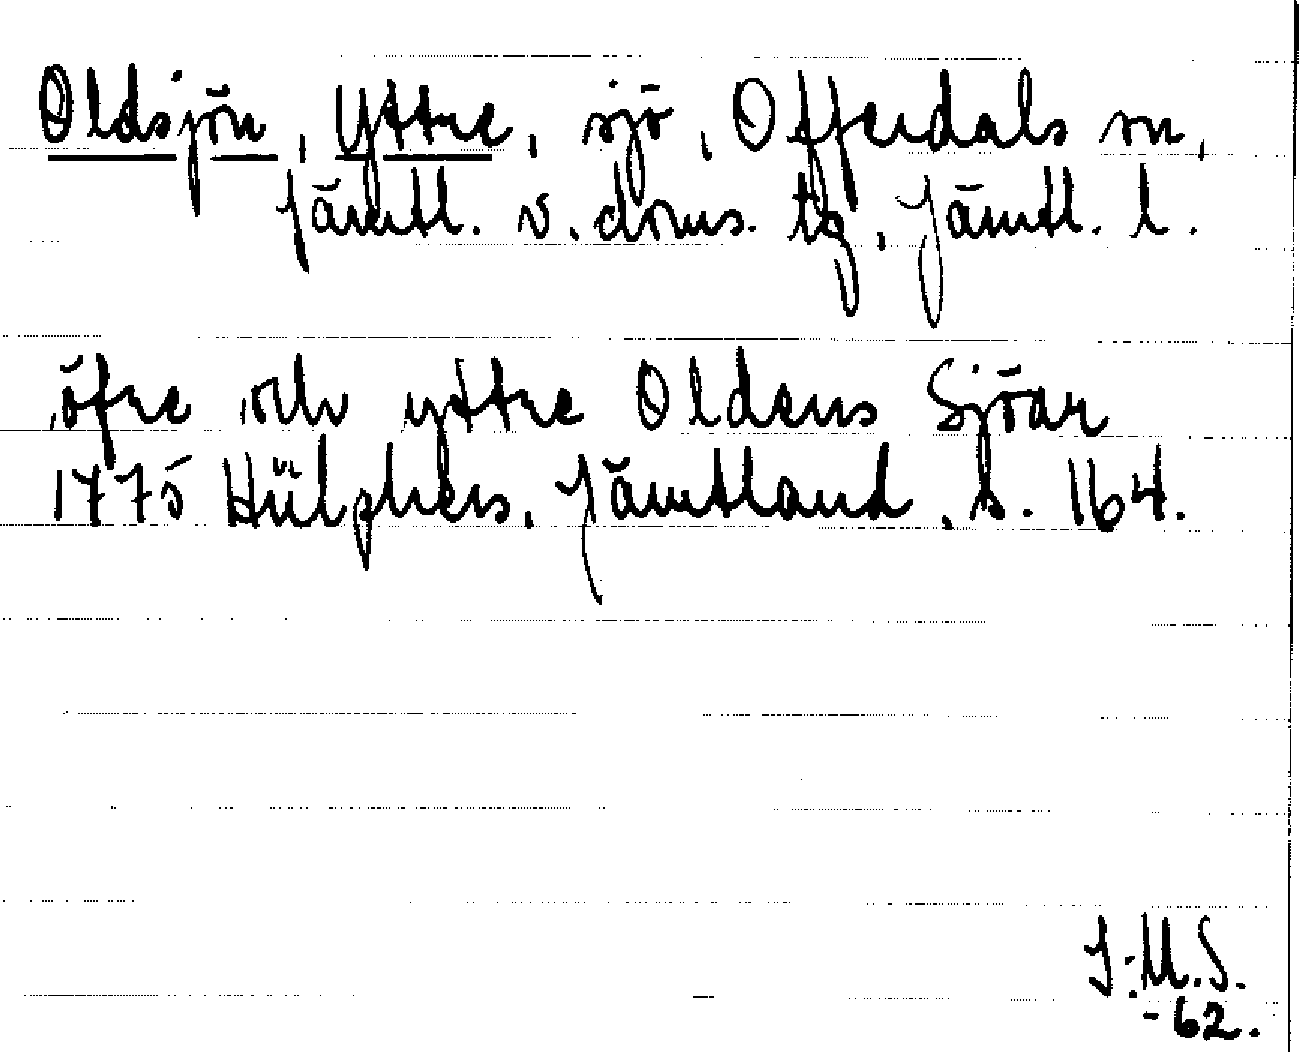 Oldsjön, Yttre, sjö, Offerdals sn,
Jämtl. v. doms. tg, Jämtl. l.
öfre och yttre Oldens Sjöar
1775 Hülphers, Jämtland, s. 164.
J.M.S.
-62.